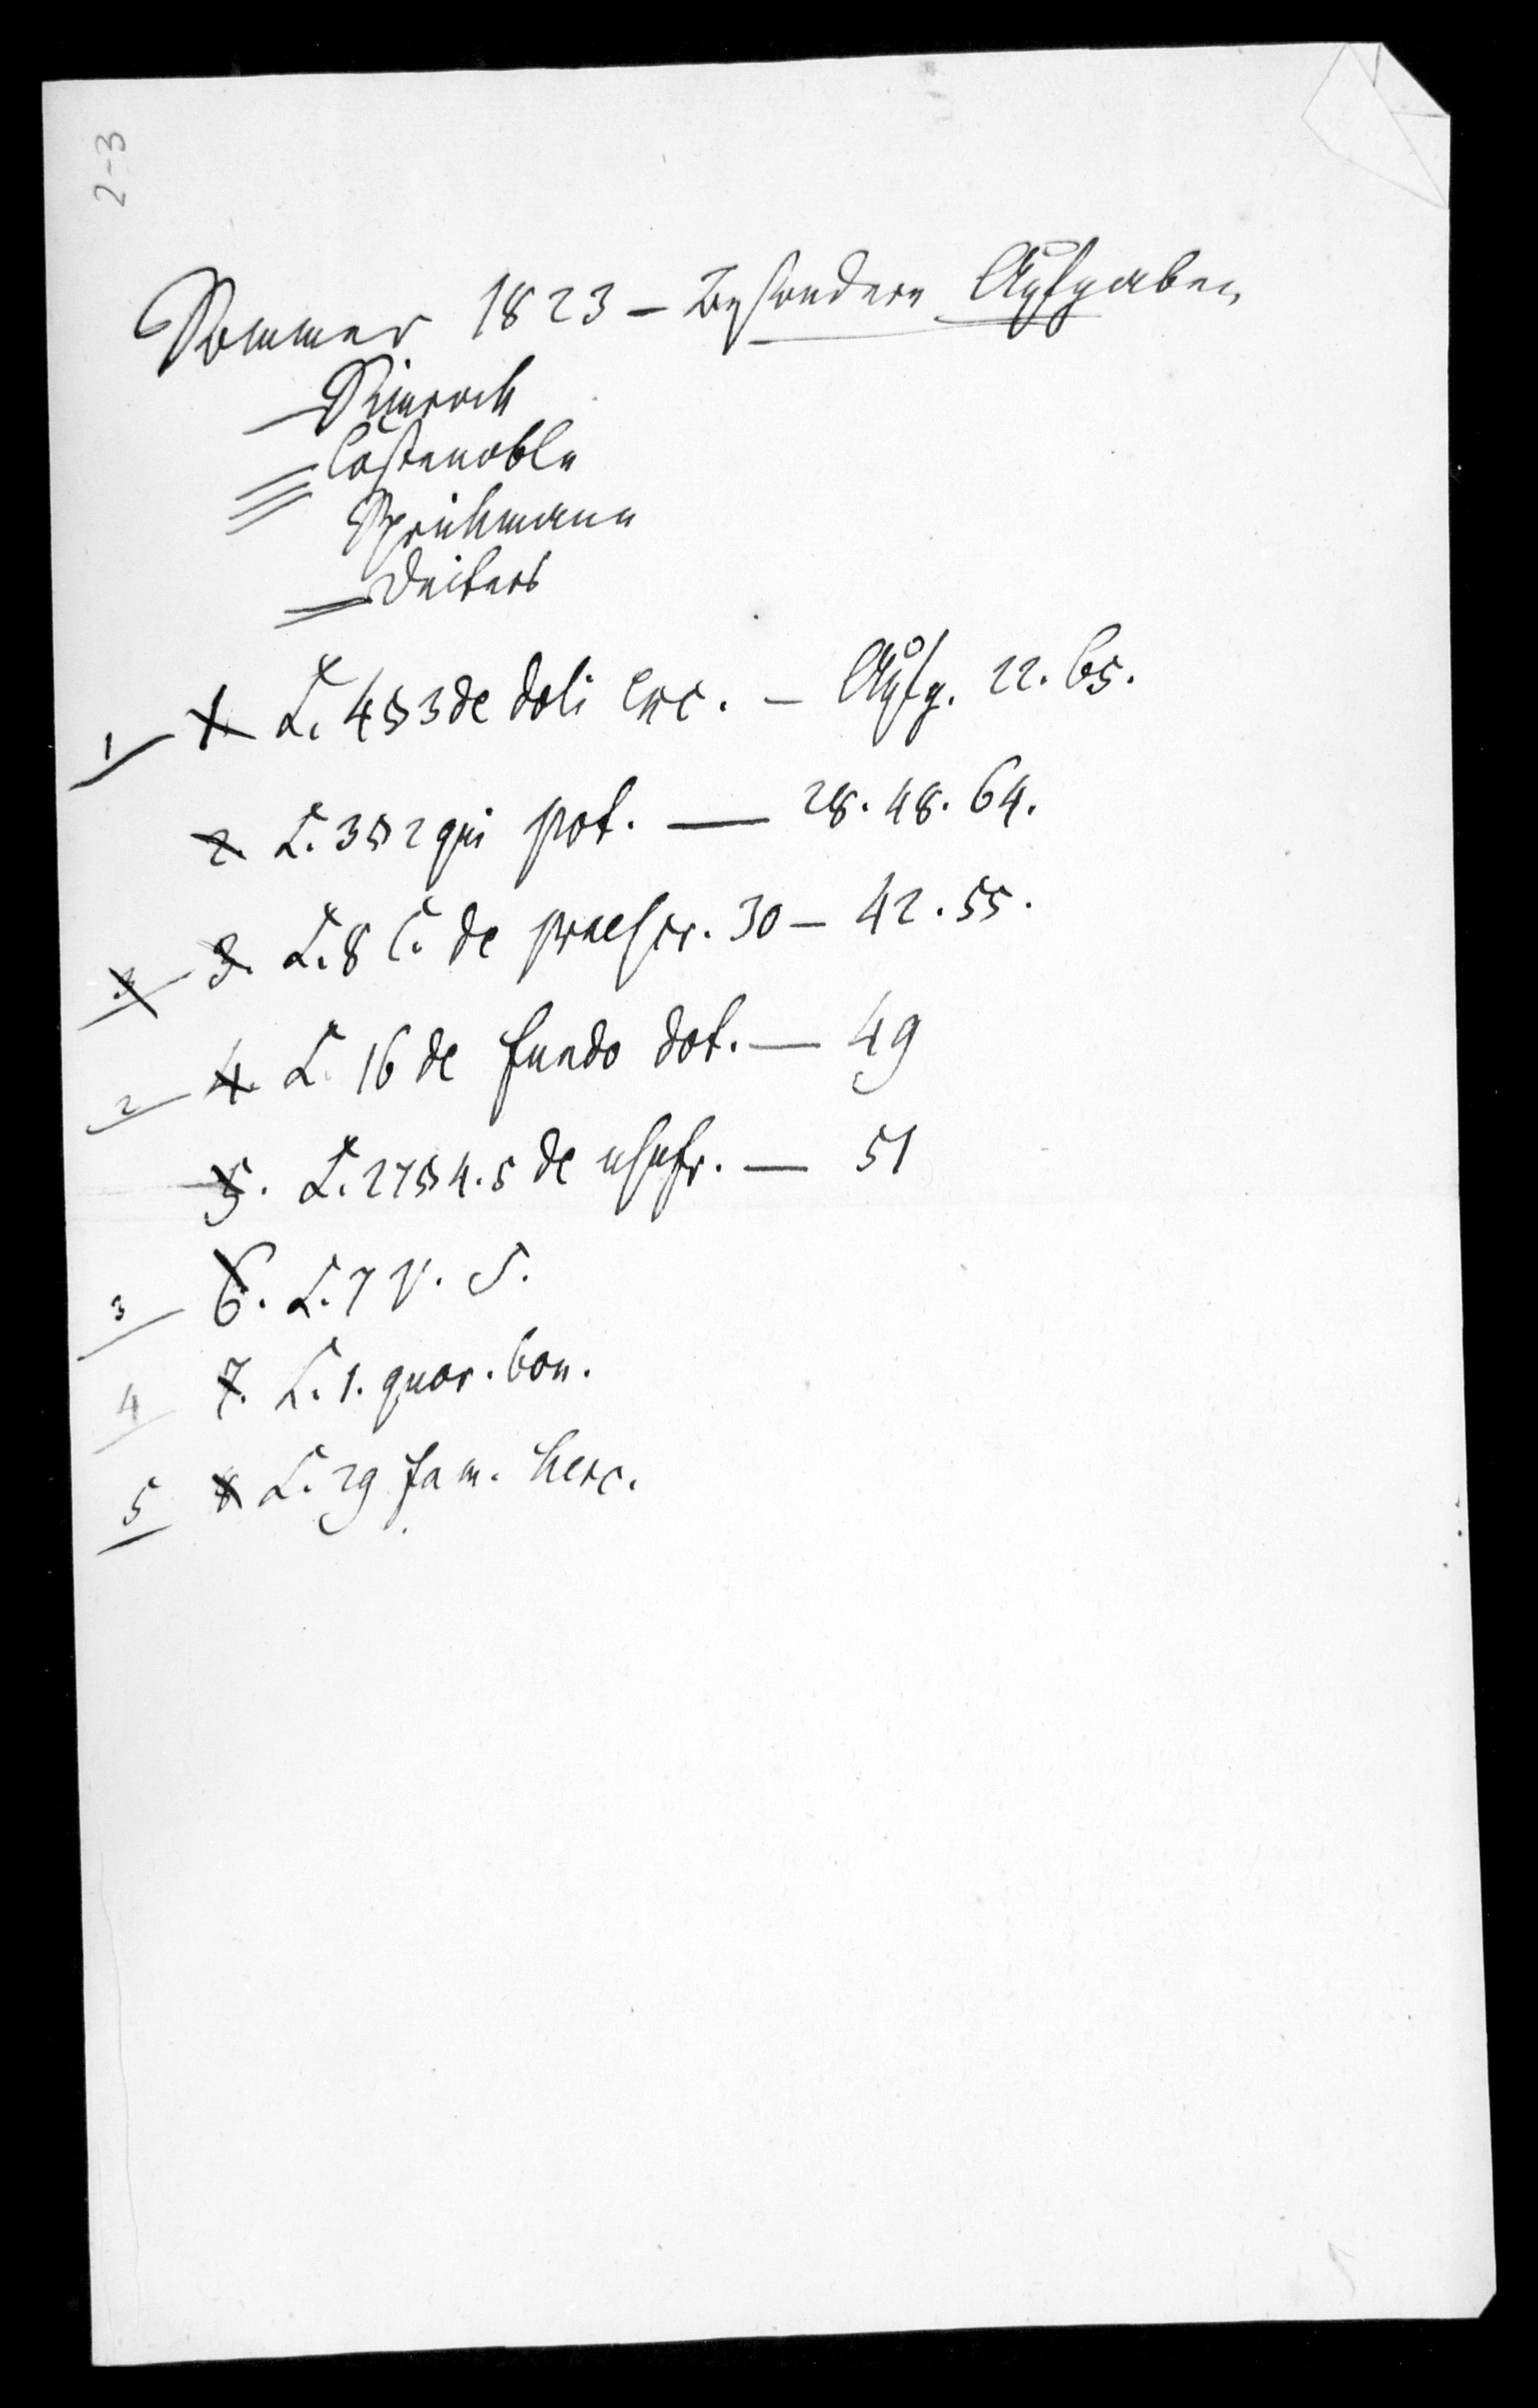 2-3
Sommer 1823 - Besondere Aufgaben
Simrock
Costenoble
Sprickmann
Deiters
1 1. L. 4 § 3 de doli exc. - Aufg. 22. 65.
2. L. 3 § 2 qui pot. — 28. 48. 64.
3 3. L. 8 C. de praescr. 30 - 42. 55.
2 4. L. 16 de fundo dot. — 49
5. L. 27 § 4. 5 de usufr. — 51
3 6. L. 7 V. S.
4 7. L. 1. quor. bon.
5 8 L. 29 fam. herc.